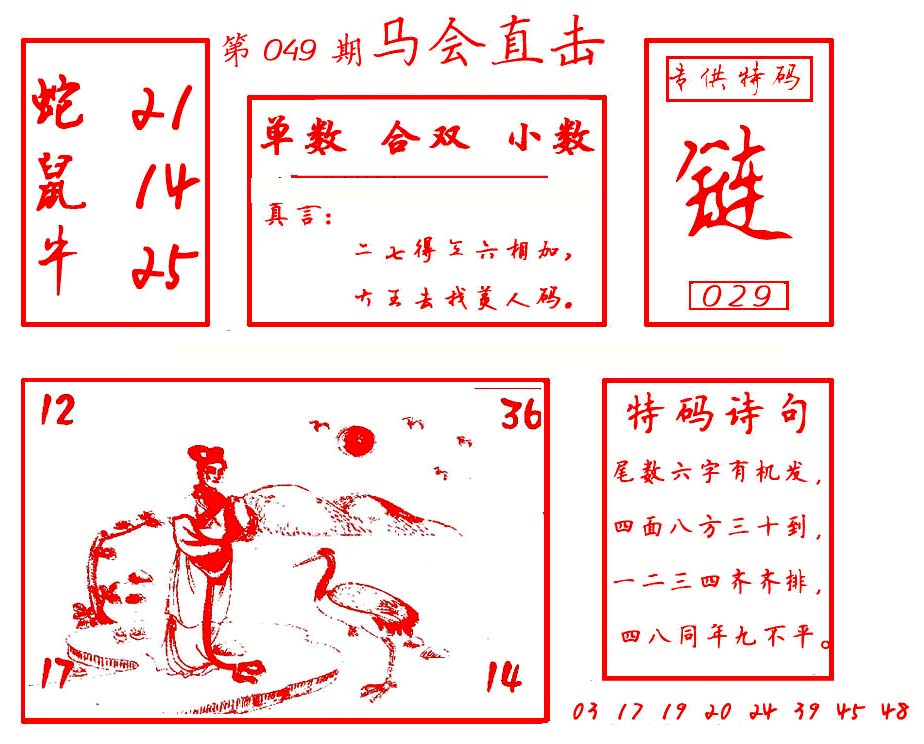 第 049 期 马会直击
蛇 21
鼠 14
牛 25
单数 合双 小数
真言：
二七得三六相加，
六五去找美人码。
专供特码
链
029
12
36
17
14
特码诗句
尾数六字有机发，
四面八方三十到，
一二三四齐齐排，
四八同年九不平。
03 17 19 20 24 39 45 48